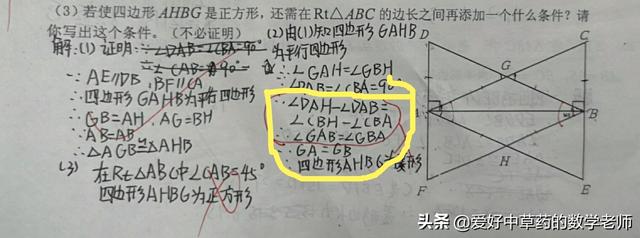 (3)若使四边形AHBG是正方形,还需在Rt△ABC的边长之间再添加一个什么条件?请
你写出这个条件。(不必证明)
解:(1)证明:∠DAB=∠CBA=90°
∠CAB=90°
∵AE∥DB,BF∥CA
∴四边形GAHB为平行四边形
∴GB=AH,AG=BH
∵AB=AB
∴△AGB≌△AHB
(3)在Rt△ABC中∠CAB=45°
四边形AHBG为正方形
(2)由(1)知四边形GAHB
为平行四边形
∴∠GAH=∠GBH
∵∠DAB=∠CBA=90°
∴∠DAH-∠DAB=
∠CBH-∠CBA
∴∠GAB=∠GBA
∴GA=GB
∴四边形AHBG为菱形
D
C
G
A
B
H
F
E
头条@爱好中草药的数学老师